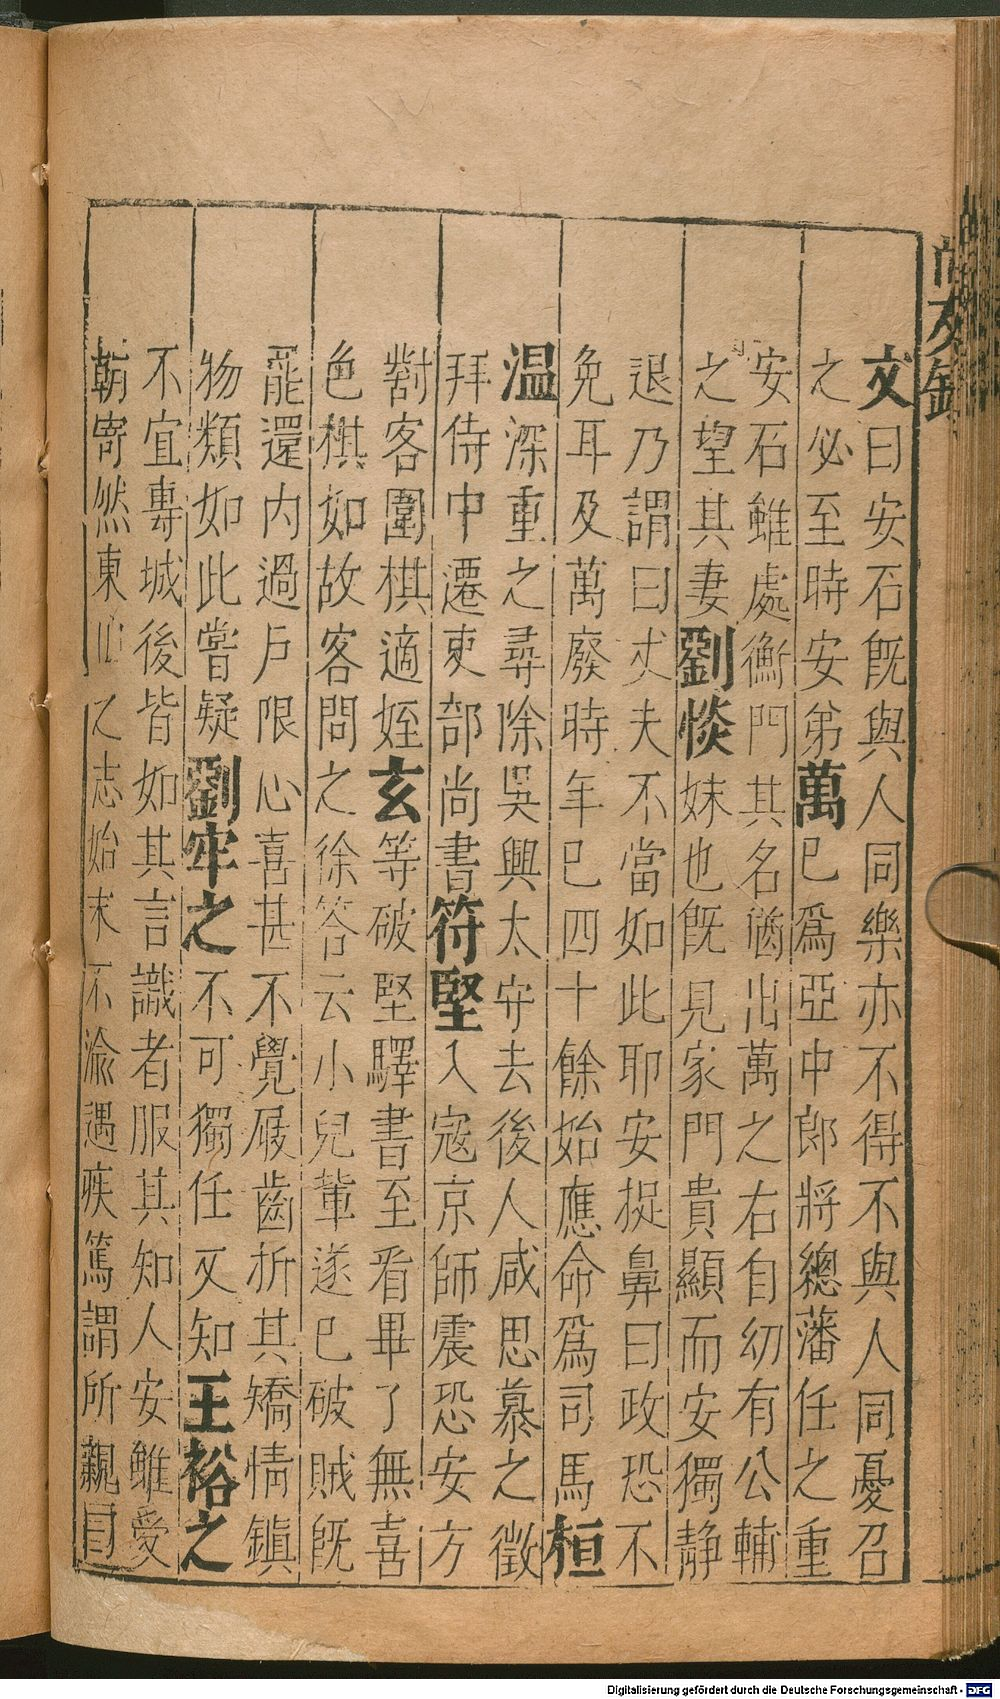 文曰安石旣與人同樂亦不得不與人同憂召
之必至時安弟萬已爲亞中郎將總藩任之重
安石雖處衡門其名猶出萬之右自幼有公輔
之望其妻劉惔妹也旣見家門貴顯而安獨靜
退乃謂曰丈夫不當如此耶安捉鼻曰政恐不
免耳及萬廢時年已四十餘始應命爲司馬桓
温深重之尋除吳興太守去後人咸思慕之徵
拜侍中遷吏部尚書符堅入寇京師震恐安方
對客圍棋適姪玄等破堅驛書至看畢了無喜
色棋如故客問之徐答云小兒輩遂已破賊旣
罷還内過戶限心喜甚不覺屐齒折其矯情鎭
物類如此嘗疑劉牢之不可獨任又知王裕之
不宜專城後皆如其言識者服其知人安雖受
朝寄然東山之志始末不渝遇疾篤謂所親曰
Digitalisierung gefördert durch die Deutsche Forschungsgemeinschaft - DFG